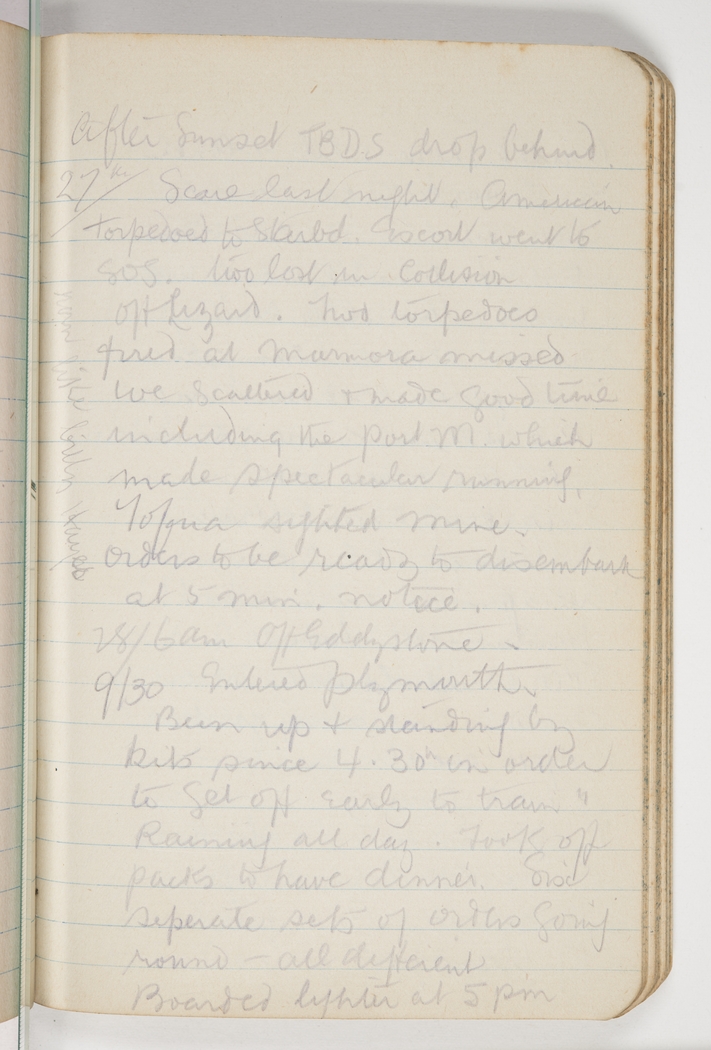 After Sunset TBDS drop behind.
27th/ Scare last night. American
torpedoed to Starbd. Escort went to
SOS. two lost in Collision
off Lizard. Two torpedoes
fired at Marmora missed
We scattered + made good time
including the Port M. which
made spectacular running.
sighted mine.
Orders to be ready to disembark
at 5 min. notice.
28/6am Off Eddystone.
9/30 Entered Plymouth.
Been up + standing by
kits since 4.30 in order
to get off early to train "
Raining all day. Took off
packs to have dinner. Six
seperate sets of orders going
round - all different
Boarded lighter at 5 pm